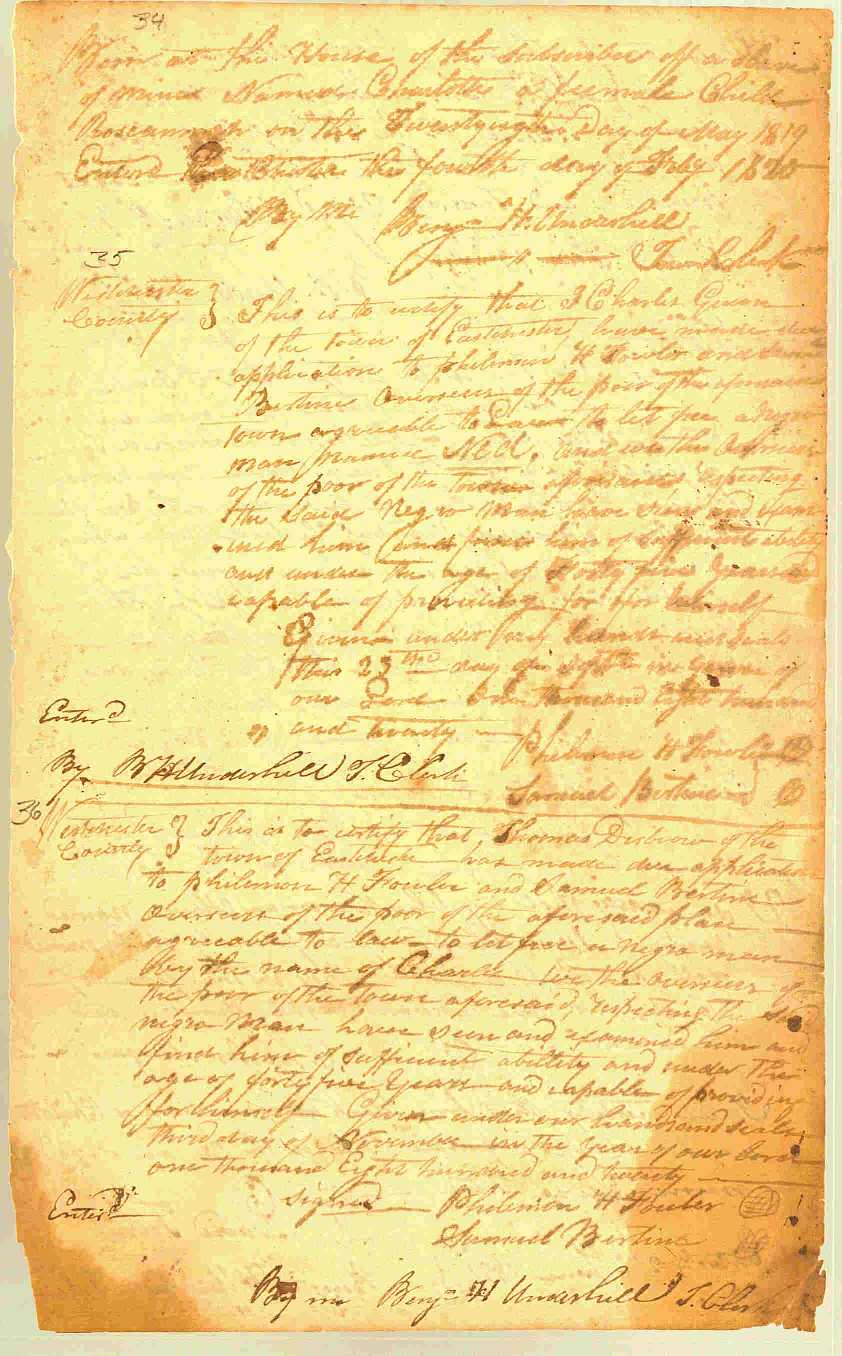 34
Born at the House of the subscriber off a slave
of mine Named Charlotte a female Child
Roseannah on the Twentyeighth Day of May 1819
Enterd the fourth day of Feby 1820
By Me Benjn H. Underhill
Town Clerk
35
Westchester
County } This is to certify that I Charles Guion
of the town of Eastchester, have made due
application to philemon H Fowler and Samuel
Bertine Overseers of the poor of the aforesaid
town agreeable to Law to let free a Negro
man named Ned. and we the Overseers
of the poor of the town aforesaid respecting
the said Negro Man have view and exam
ined him and find him of sufficient ability
and under the age of forty five Years and
capable of providing for for himself
Given under our hands and seals
this 25th day of Sept in the year of
our Lord One thousand Eight hundred
and twenty
Enterd
Philemon H Fowler
By B H Underhill T. Clerk
Samuel Bertine
36
Westchester
County } This is to certify that Thomas Disbrow of the
town of Eastchester has made due application
to philemon H Fowler and Samuel Bertine
Overseers of the poor of the aforesaid plan
agreeable to law to let free a negro man
by the name of Charles we the overseers of
the poor of the town aforesaid, respecting the said
negro Man have seen and examined him and
find him of sufficient abillity and under the
age of forty five Years and capable of providing
for himself Given under our hands and seals
third day of November in the year of our Lord
one thousand Eight hundred and twenty
signed Philemon H Fowler
Enterd
Samuel Bertine
By me Benjn H Underhill T. Clerk